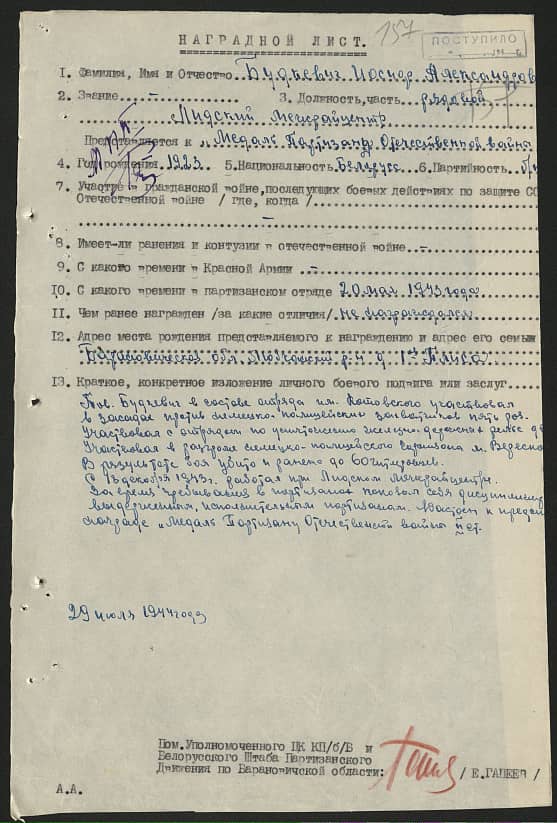 157
ПОСТУПИЛО
НАГРАДНОЙ ЛИСТ.
1. Фамилия, Имя и Отчество Будкевич Иосиф Александров
2. Звание - 3. Должность, часть рядовой
Лидский Межрайцентр
Представляется к "Медаль Партизану Отечественной войны
4. Год рождения 1923 5. Национальность Белорусс 6. Партийность б/п
7. Участие в гражданской войне, последующих боевых действиях по защите СС
Отечественной войне /где, когда/
-
8. Имеет-ли ранения и контузии в отечественной войне -
9. С какого времени в Красной Армии -
10. С какого времени в партизанском отряде 20 мая 1943 года
11. Чем ранее награжден /за какие отличия/ не награждался
12. Адрес места рождения представляемого к награждению и адрес его семьи
Барановичская обл. р-н д.
13. Краткое, конкретное изложение личного боевого подвига или заслуг
Тов. Будкевич в составе отряда им. Котовского участвовал
в засадах против немецко-полицейских захватчиков пять раз.
Участвовал с отрядом по уничтожению железно-дорожных рельс д
Участвовал в разгроме немецко-полицейского гарнизона м.
В результате боя убито и ранено до 60 гитлеровцев.
С 13 декабря 1943г. работал при Лидском межрайцентре.
За время пребывания в партизанах показал себя дисциплиниро
выдержанным, исполнительным партизаном. Достоин к предст
награде "Медаль Партизану Отечественной войны II ст.
29 июля 1944 года
Пом. Уполномоченного ЦК КП/б/Б и
Белорусского Штаба Партизанского
Движения по Барановичской области: /Е.ГАПЕЕВ/
А.А.